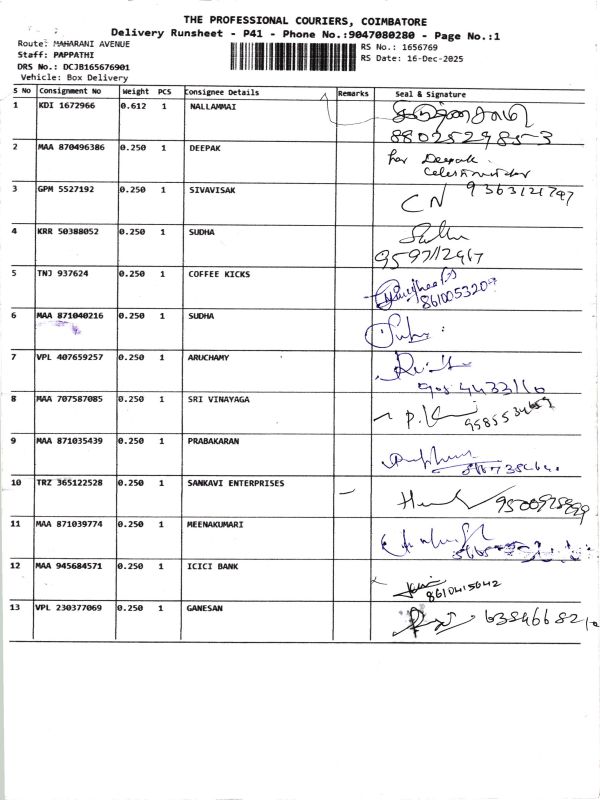 THE PROFESSIONAL COURIERS, COIMBATORE
Delivery Runsheet - P41 - Phone No.:9047080280 - Page No.:1
Route: MAHARANI AVENUE
Staff: PAPPATHI
DRS No.: DCJB165676901
Vehicle: Box Delivery
RS No.: 1656769
RS Date: 16-Dec-2025
S No Consignment No Weight PCS Consignee Details Remarks Seal & Signature
1 KDI 1672966 0.612 1 NALLAMMAI
8802529853
2 MAA 870496386 0.250 1 DEEPAK for Deepak
3 GPM 5527192 0.250 1 SIVAVISAK CN 9363121797
4 KRR 50388052 0.250 1 SUDHA
5 TNJ 937624 0.250 1 COFFEE KICKS
6 MAA 871040216 0.250 1 SUDHA
7 VPL 407659257 0.250 1 ARUCHAMY
8 MAA 707587085 0.250 1 SRI VINAYAGA
9 MAA 871035439 0.250 1 PRABAKARAN
10 TRZ 365122528 0.250 1 SANKAVI ENTERPRISES
11 MAA 871039774 0.250 1 MEENAKUMARI
12 MAA 945684571 0.250 1 ICICI BANK
8610415642
13 VPL 230377069 0.250 1 GANESAN